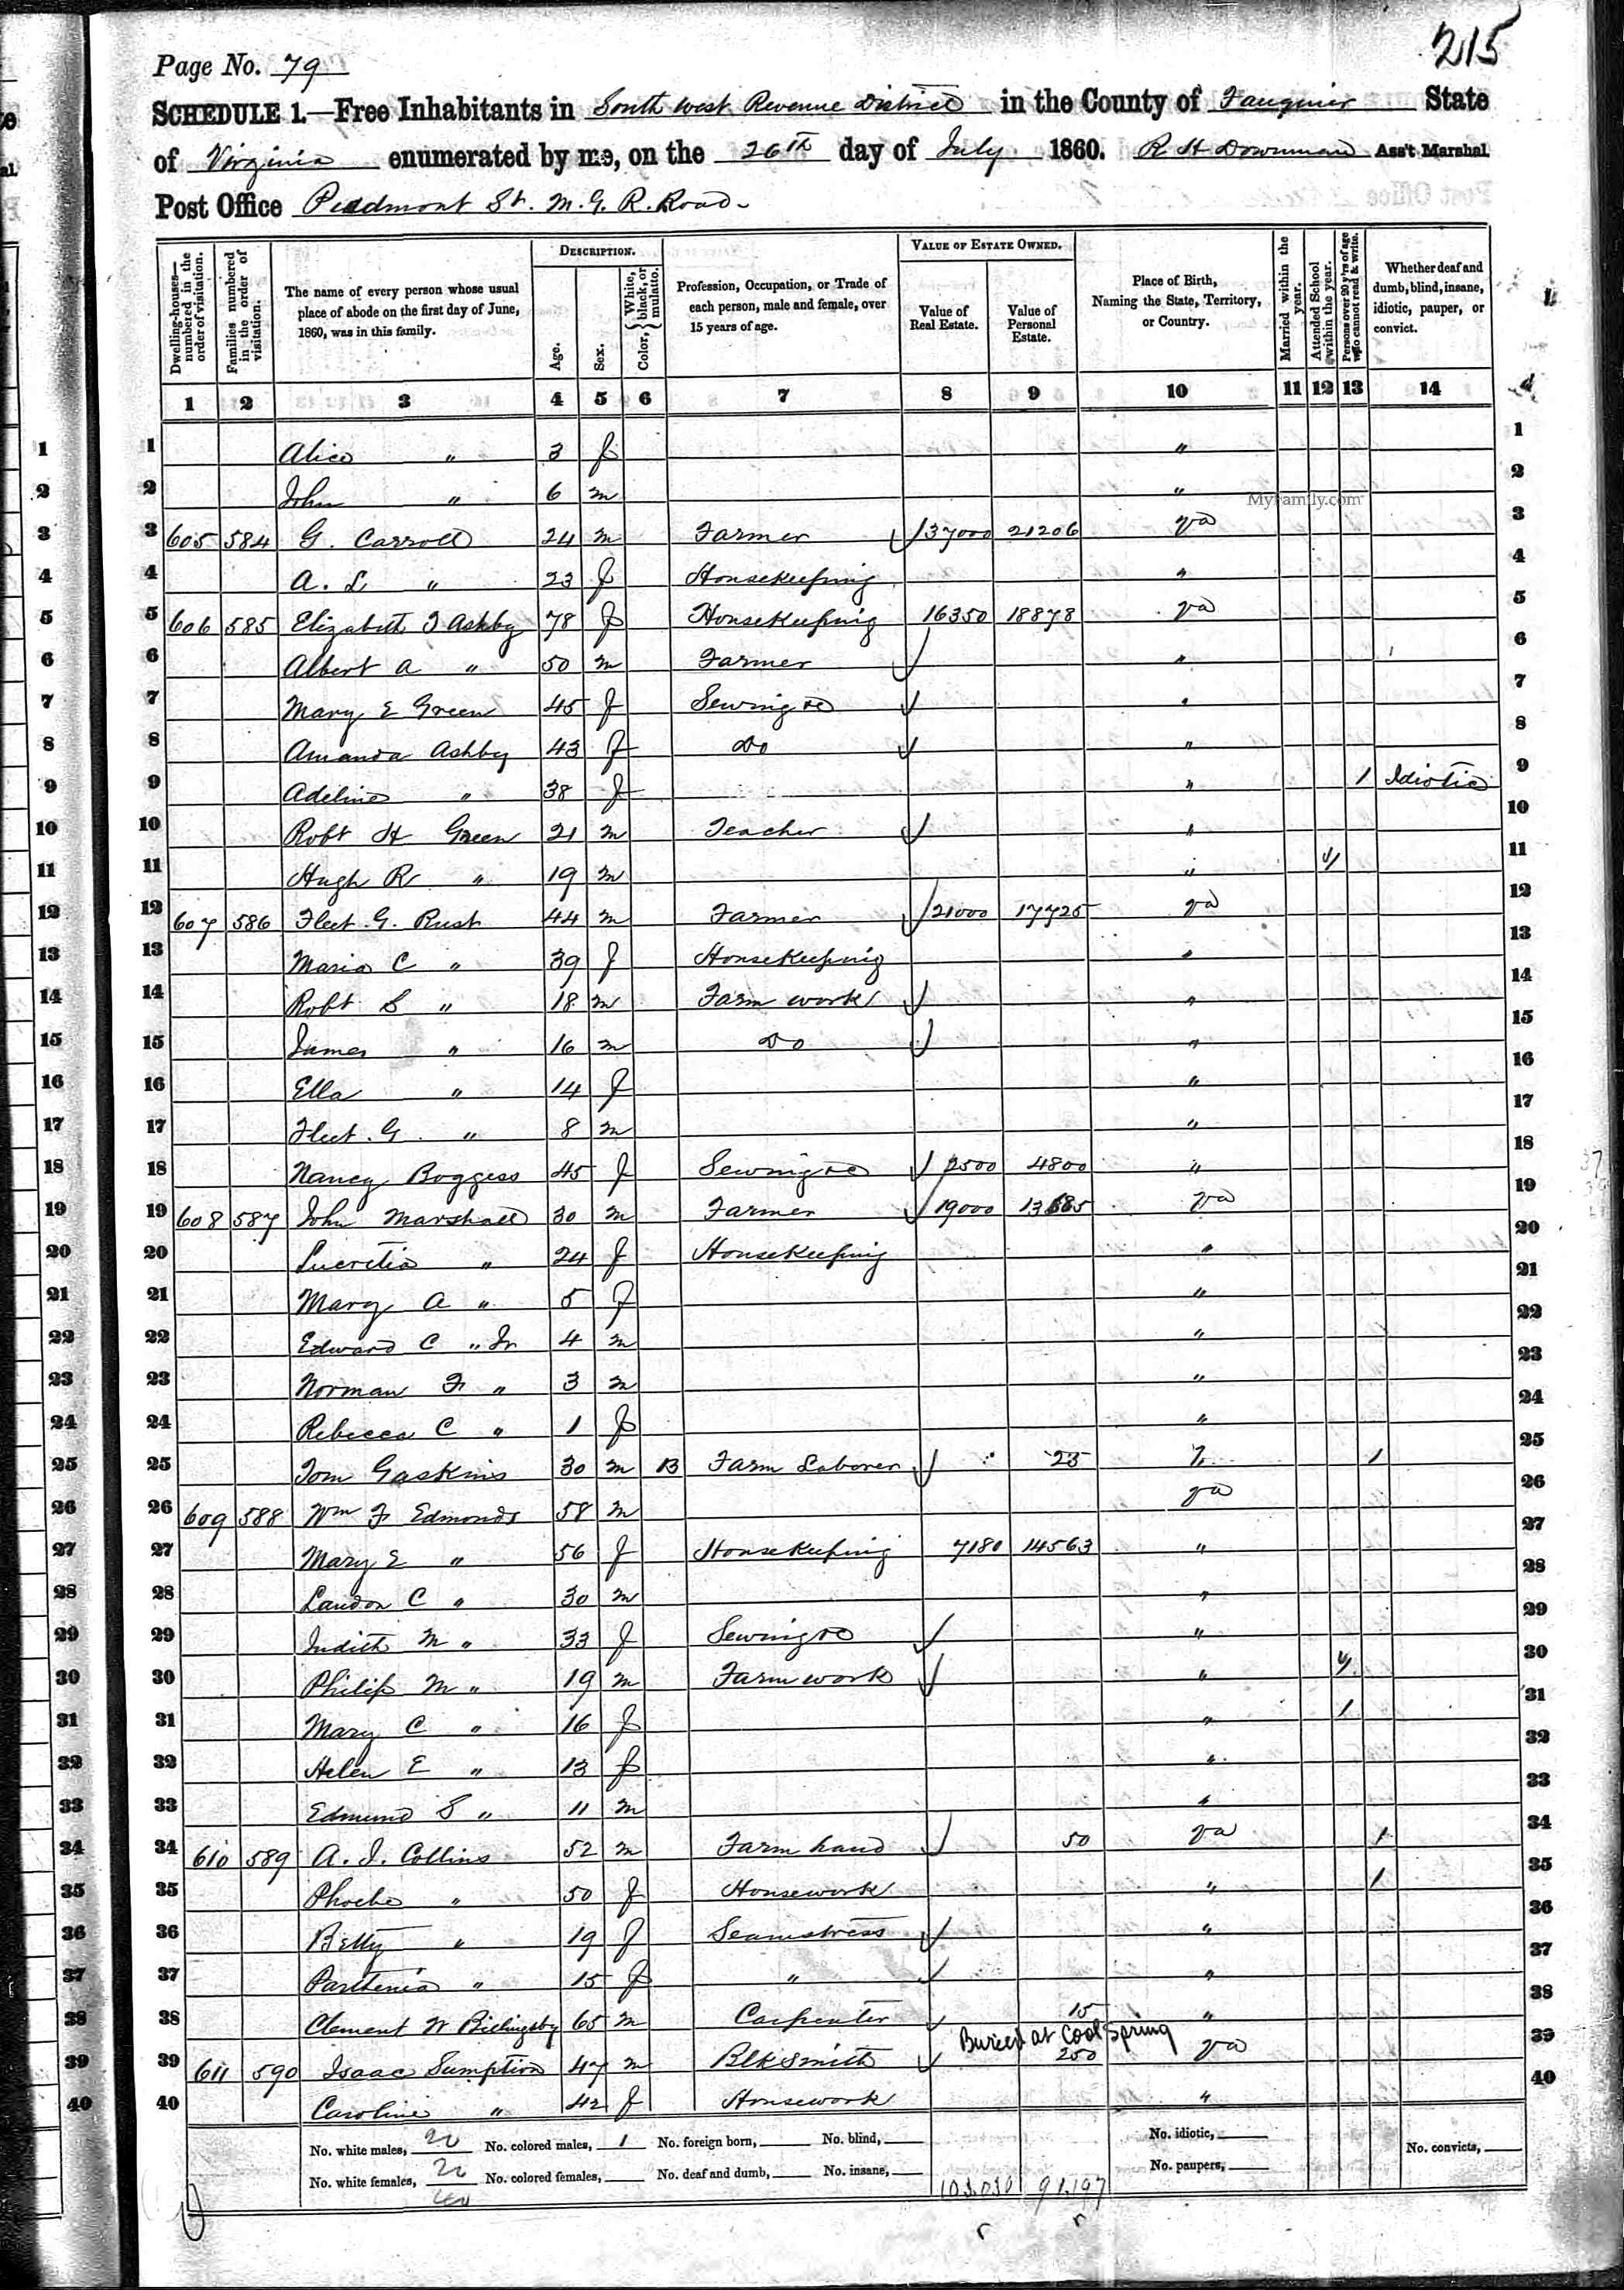 215
Page No. 79
SCHEDULE 1.—Free Inhabitants in South West Revenue District in the County of Fauquier State
of Virginia enumerated by me, on the 26th day of July 1860. R H Downman Ass't Marshal
Post Office Piedmont St. M. G. R. Road
Dwelling-houses—numbered in the order of visitation. Families numbered in the order of visitation. The name of every person whose usual place of abode on the first day of June, 1860, was in this family. DESCRIPTION. Age. Sex. Color, { White, black, or mulatto. Profession, Occupation, or Trade of each person, male and female, over 15 years of age. VALUE OF ESTATE OWNED. Value of Real Estate. Value of Personal Estate. Place of Birth, Naming the State, Territory, or Country. Married within the year. Attended School within the year. Persons over 20 y'rs of age who cannot read & write. Whether deaf and dumb, blind, insane, idiotic, pauper, or convict.
1 2 3 4 5 6 7 8 9 10 11 12 13 14
1 Alice " 3 f " 1
2 John " 6 m " 2
MyFamily.com
3 605 584 G. Carroll 24 m Farmer 37000 21206 Va 3
4 A. L " 23 f Housekeeping " 4
5 606 585 Elizabeth T Ashby 78 f Housekeeping 16350 18878 Va 5
6 Albert A " 50 m Farmer " 6
7 Mary E Green 45 f Sewing &c " 7
8 Amanda Ashby 43 f Do " 8
9 Adeline " 38 f " 1 Idiotic 9
10 Robt H Green 21 m Teacher " 10
11 Hugh R " 19 m " 1 11
12 607 586 Fleet. G. Rust 44 m Farmer 21000 17725 Va 12
13 Maria C " 39 f Housekeeping " 13
14 Robt S " 18 m Farm work " 14
15 James " 16 m Do " 15
16 Ella " 14 f " 16
17 Fleet. G. " 8 m " 17
18 Nancy Boggess 45 f Sewing &c 2500 4800 " 18
19 608 587 John Marshall 30 m Farmer 19000 13685 Va 19
20 Lucretia " 24 f Housekeeping " 20
21 Mary A " 5 f " 21
22 Edward C " Jr 4 m " 22
23 Norman F " 3 m " 23
24 Rebecca C " 1 f " 24
25 Tom Gaskins 30 m B Farm Laborer 25 1 25
26 609 588 Wm F Edmonds 58 m Va 26
27 Mary E " 56 f Housekeeping 7180 14563 " 27
28 Landon C " 30 m " 28
29 Judith M " 33 f Sewing &c " 29
30 Philip M " 19 m Farm work " 1 30
31 Mary C " 16 f " 1 31
32 Helen E " 13 f " 32
33 Edmund S " 11 m " 33
34 610 589 A. J. Collins 52 m Farm hand 50 Va 1 34
35 Phoebe " 50 f Housework " 1 35
36 Betty " 19 f Seamstress " 36
37 Parthenia " 15 f " " 37
38 Clement W Billingsby 65 m Carpenter 15 " 38
Buried at Cool Spring
39 611 590 Isaac Sumption 47 m Blksmith 250 Va 39
40 Caroline " 42 f Housework " 40
No. white males, 20 No. colored males, 1 No. foreign born, No. blind, No. idiotic, No. convicts,
No. white females, 20 No. colored females, No. deaf and dumb, No. insane, 103,030 91,197 No. paupers,
40